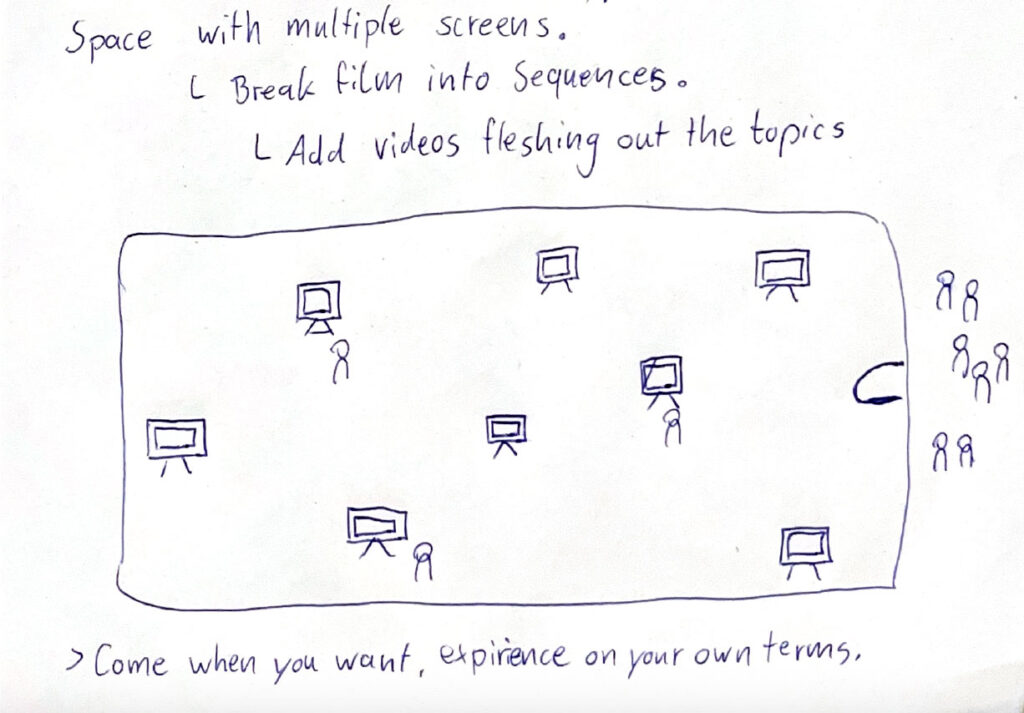 Space with multiple screens.
└ Break film into Sequences.
└ Add videos fleshing out the topics
> Come when you want, expirience on your own terms.